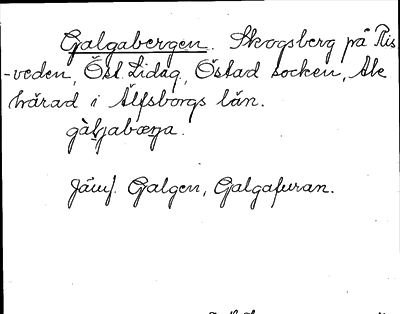 Galgabergen. Skogsberg på Ris
-veden, Öst. Lidaq, Östad socken, Ale
härad i Älfsborgs län.
gàljabærja.
Jämf. Galgen, Galgafuran.